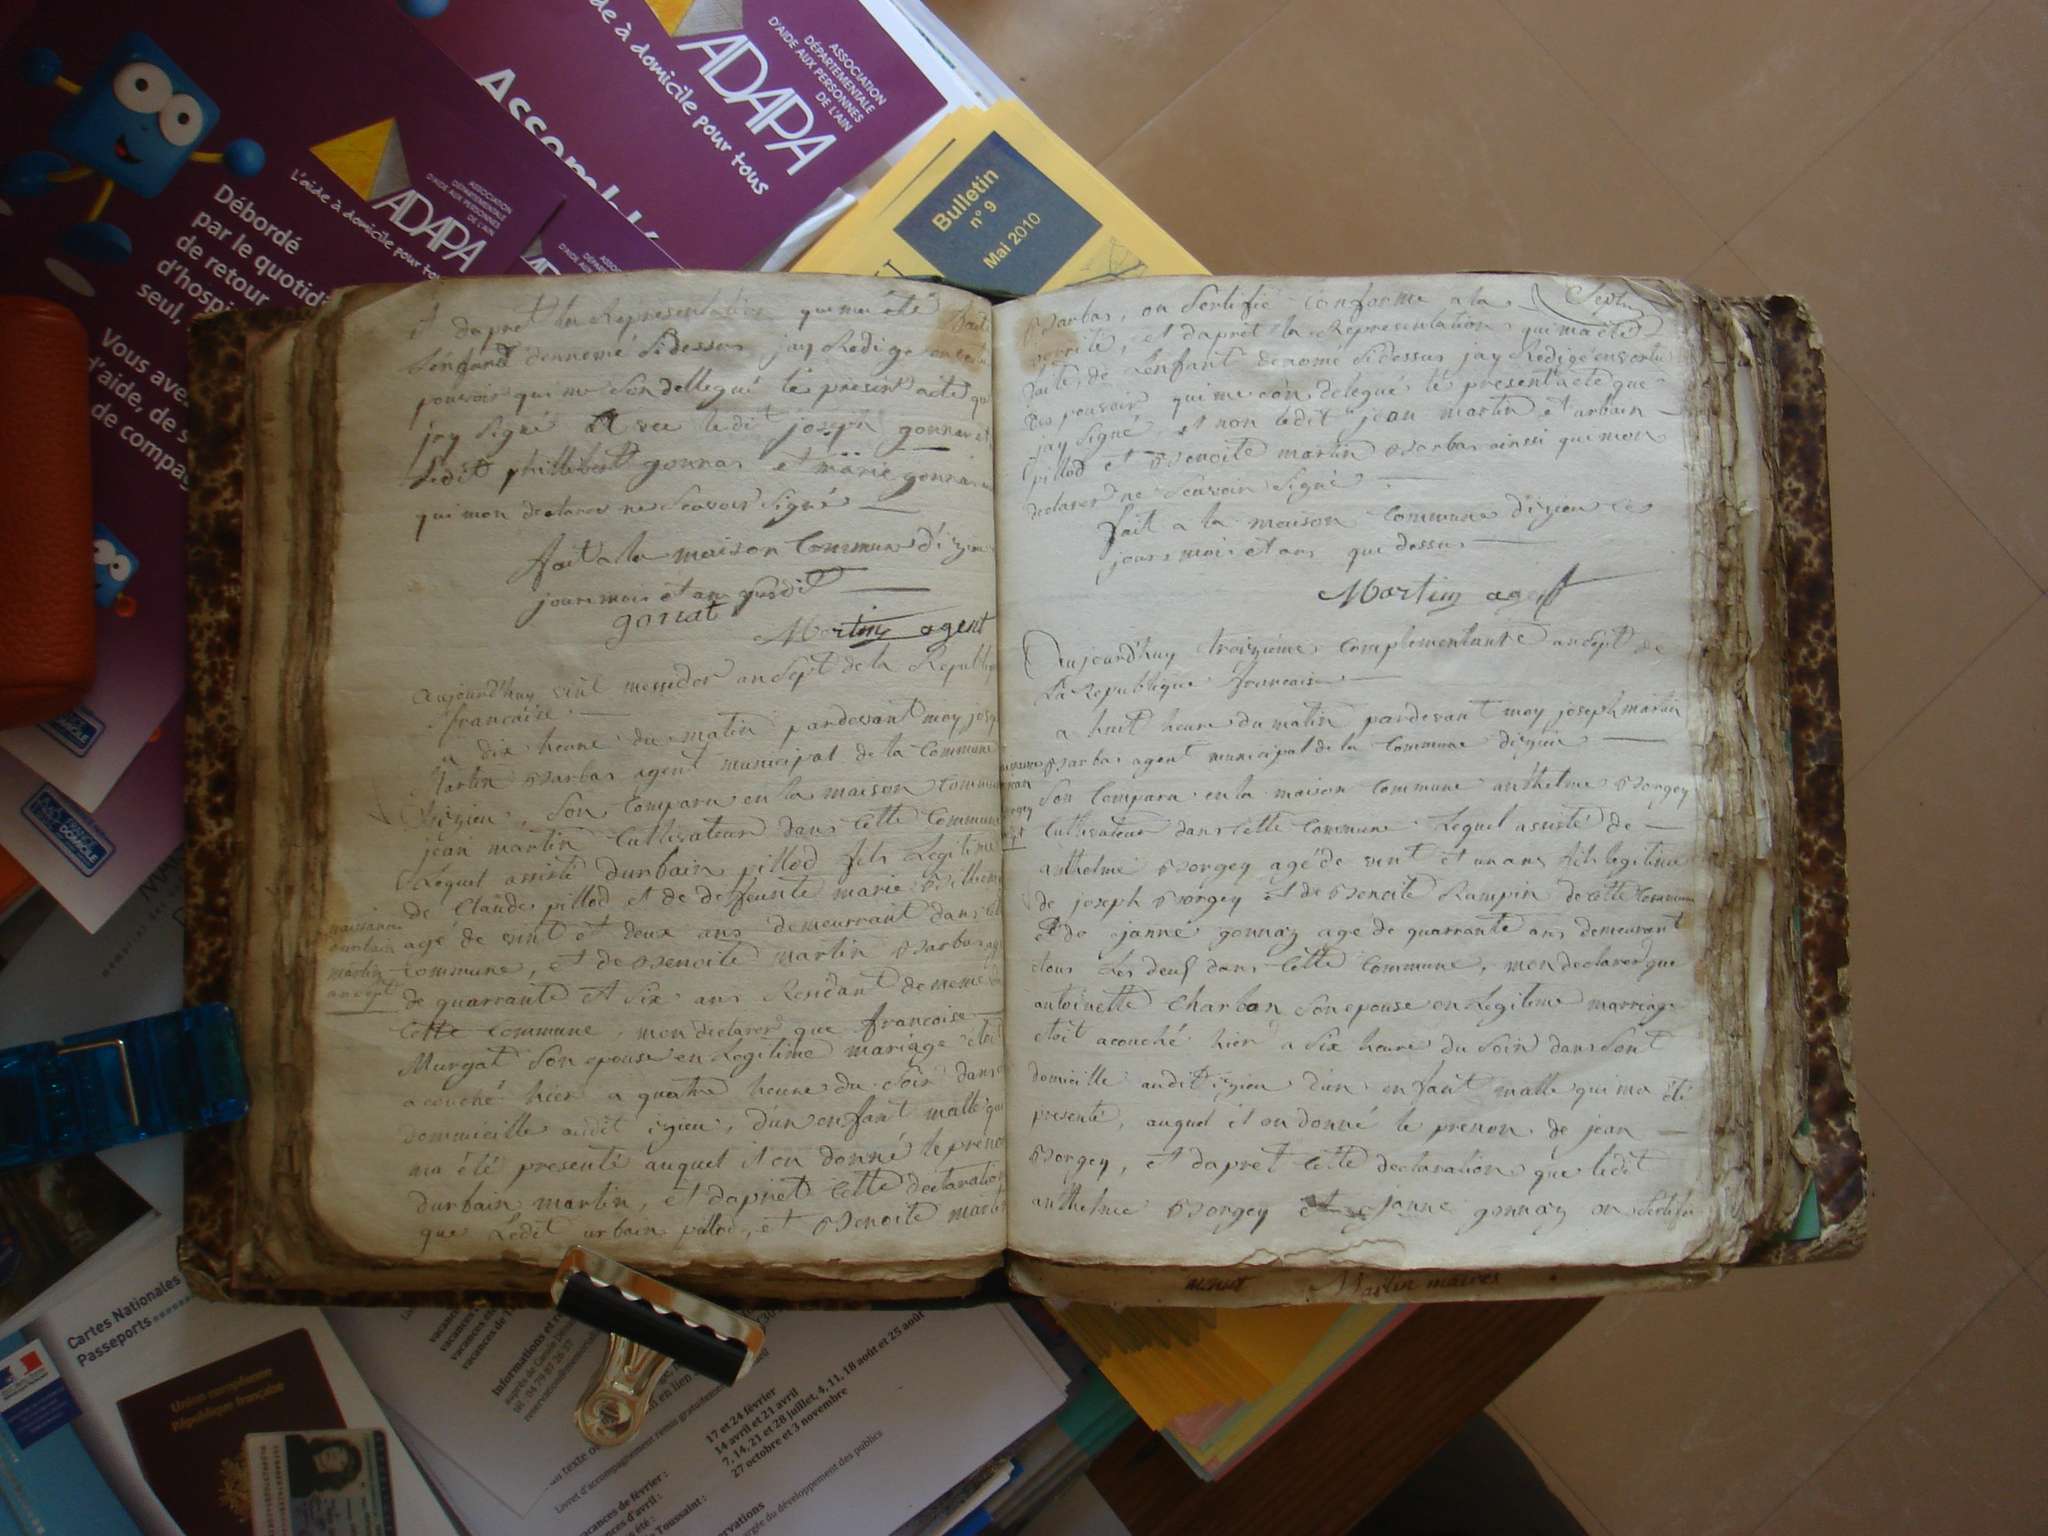 Débordé
par le quotidi
de retour
d'hospi
seul,
Vous ave
d'aide, de s
de compag
ADAPA
ASSOCIATION
DÉPARTEMENTALE
D'AIDE AUX PERSONNES
DE L'AIN
L'aide à domicile pour to
Assembl
ADAPA
ASSOCIATION
DÉPARTEMENTALE
D'AIDE AUX PERSONNES
DE L'AIN
de à domicile pour tous
Bulletin
n° 9
Mai 2010
et dapret la Representation qui ma été faite
L'enfant dennomé Sidessus jay Redigé en vertu
pouvoir qui me Son dellegué le present acte qu
jay Signé Avec ledit joseph gonnas et
Ledit phillibert gonnas et marie gonnas
qui mon declarer ne Scavoir Signé
fait a la maison Commune d'izieu
jours mois et ans susdit
gonnat
Martin agent
aujourd'huy vint messidor an Sept de la Republi
francaise
a dix heure du matin pardevant moy josep
Martin Barbas agent municipal de la Commune
d'izieu, Son Comparu en la maison Commu
jean martin Cultivateur dans Cette Commune
Lequel assisté durbain pillod fils Legitime
de Claude pillod et de deffeunte marie
agé de vint et deux ans demeurrant dans Cet
Commune, et de Benoite martin Barbas ag
de quarrante et Six ans Residant de meme d
Cette Commune, mon declarer que francoise
Murgat Son epouse en Legitime mariage etoi
acouché hier a quatre heure du Soir dans
dommicille audit izieu, d'un enfant malle qui
ma été presenté auquel il on donné le préno
durbain martin, et dapret Cette declaration
que Ledit urbain pillod, et Benoite marti
naissance
durbain
martin
an Sept
Barbas, on Sertifié Conforme a la
verité, et dapret la Representation qui ma été
faite, de Lenfant denomé Sidessus jay Redigé en vertu
des pouvoir qui me Son delegué le present acte que
jay Signé et non ledit jean martin et urbain
pillod et Benoite martin Barbas ainsi qui mon
declarer ne Scavoir Signé
fait a la maison Commune d'izieu les
jours mois et ans que dessus
Martin agent
aujourd'huy troizieme Complementaire an Sept de
La Republique francaise
a huit heure du matin pardevant moy joseph martin
Barbas agent municipal de la Commune d'izieu
Son Comparu en la maison Commune anthelme Borgey
Cultivateur dans Cette Commune Lequel assisté de
anthelme Borgey agé de vint et un ans fils legitime
de joseph Borgey et de Benoite Rampin de Cette Commune
et de janne gonnaz agé de quarrante ans demeurant
tous Les deux dans Cette Commune, mon declarer que
antoinette Charbon Son epouse en Legitime marriage
etoit acouché hier a Six heure du Soir dans Sont
domicille audit izieu d'un enfant malle qui ma été
presenté, auquel il on donné le prenon de jean
Borgey, et dapret Cette declaration que ledit
anthelme Borgey et janne gonnaz on Sertifié
Martin maires
Cartes Nationales
Passeports
Union européenne
République française
Informations et re
17 et 24 février
14 avril et 21 avril
7, 14, 21 et 28 juillet, 4, 11, 18 août et 25 août
27 octobre et 3 novembre
acances de février :
Toussaint :
Livret d'accompagnement remis gratuitement
argée du développement des publics
DOMICILE